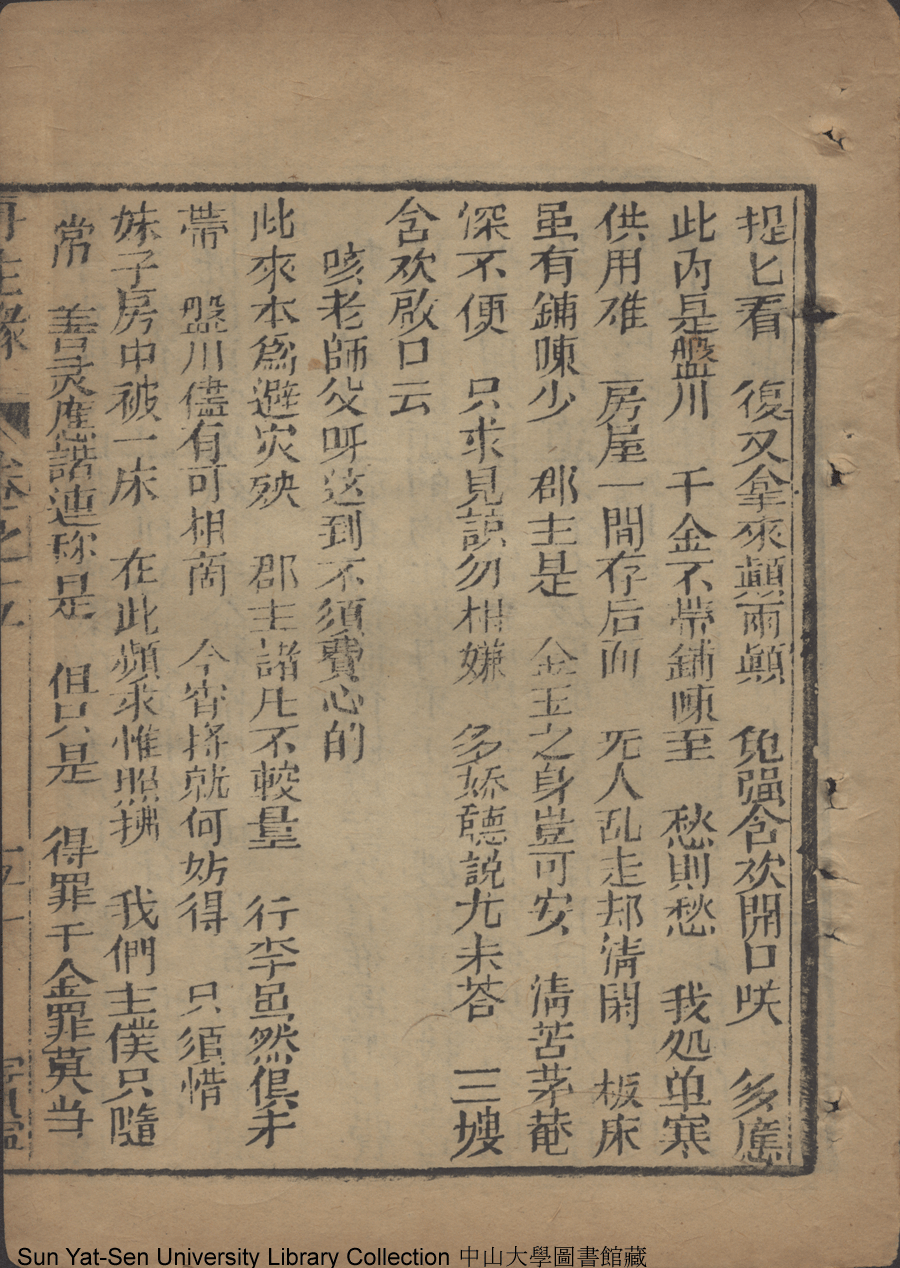 捉匕看　復又拿來顛兩顛　免强含欢開口咲　多應
此内是盤川　千金不帶鋪陳至　愁則愁　我処单寒
供用难　房屋一間存后面　旡人乱走却清閑　板床
虽有鋪陳少　郡主是　金玉之身豈可安　清苦茅菴
深不便　只求見諒勿相嫌　多娇聽説尤未答　三嫂
含欢啟口云
咳老師父呀这到不須費心的
此來本爲避灾殃　郡主諸凡不較量　行李虽然俱未
帶　盤川儘有可相商　今宵搭就何妨得　只須惜
妹子房中被一床　在此頻求惟照拂　我們主僕只隨
常　善灵應諾連称是　但只是　得罪千金罪莫当
再生緣　卷之五
Sun Yat-Sen University Library Collection 中山大學圖書館藏